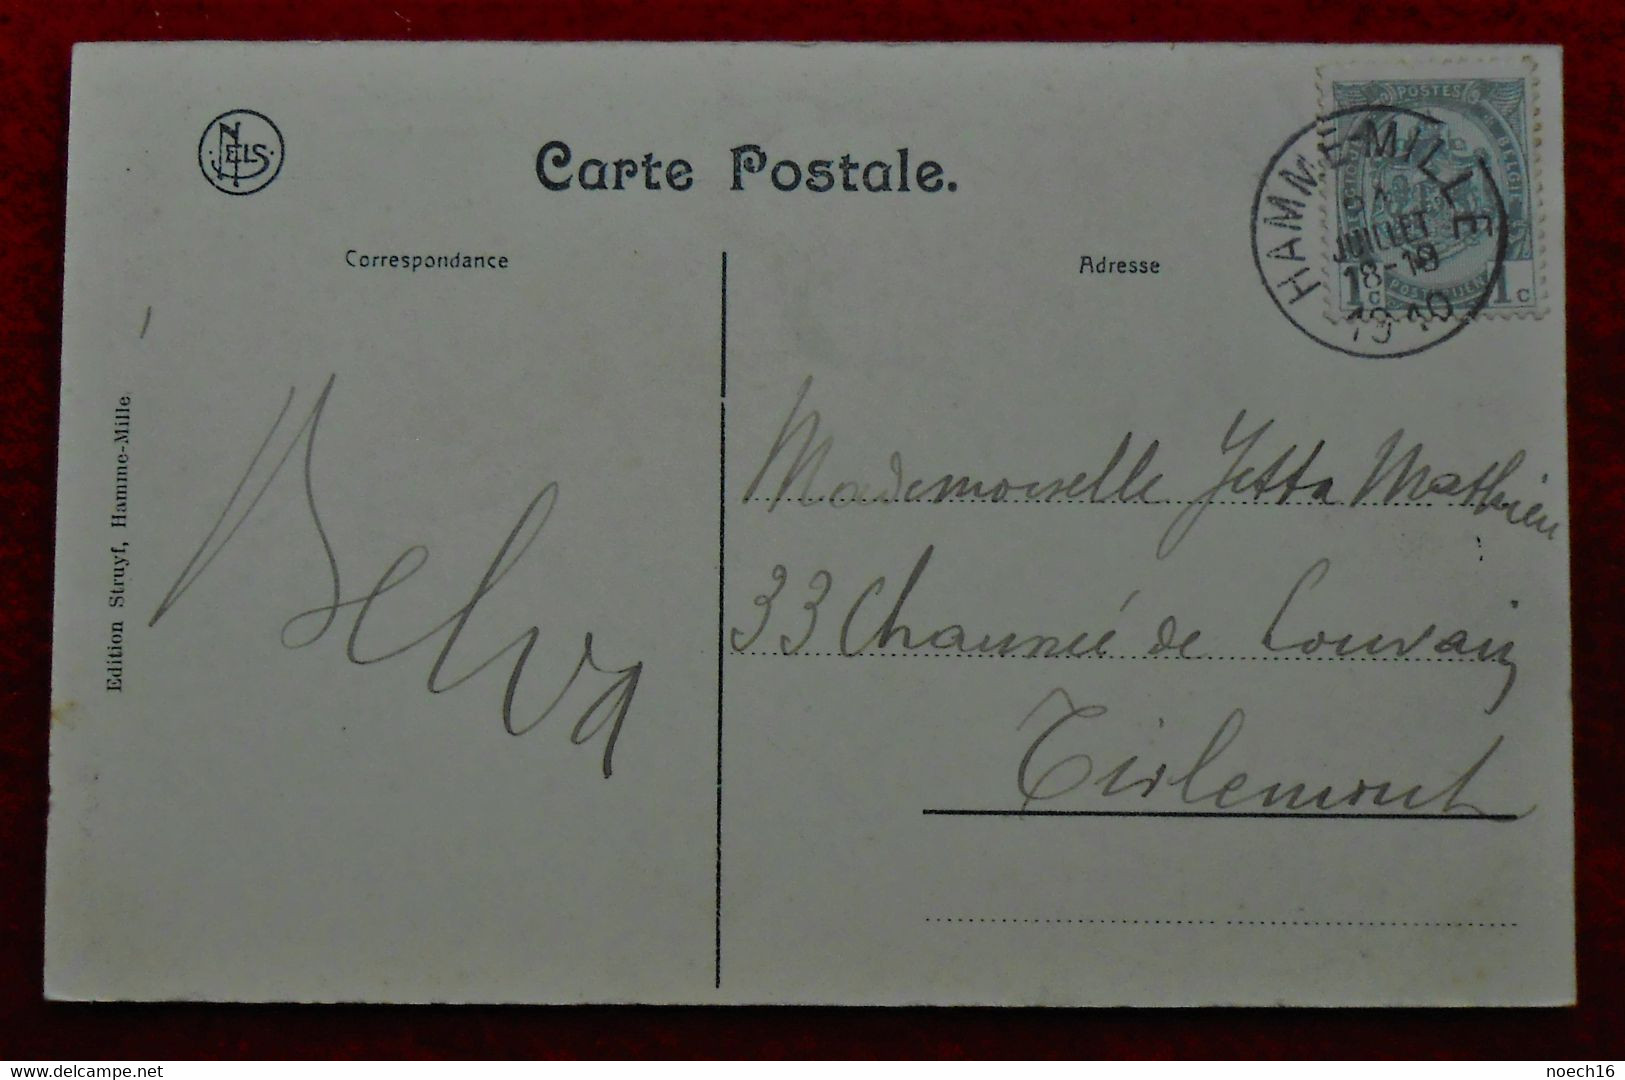 NELS
Carte Postale.
Correspondance
Adresse
POSTES
BELGIE
1c 1c
HAMME-MILLE
JUILLET
18-19
1910
Edition Struyf, Hamme-Mille
Mademoiselle Jetta Mathieu
33 Chaussée de Louvain
Tirlemont
delcampe.net
noech16